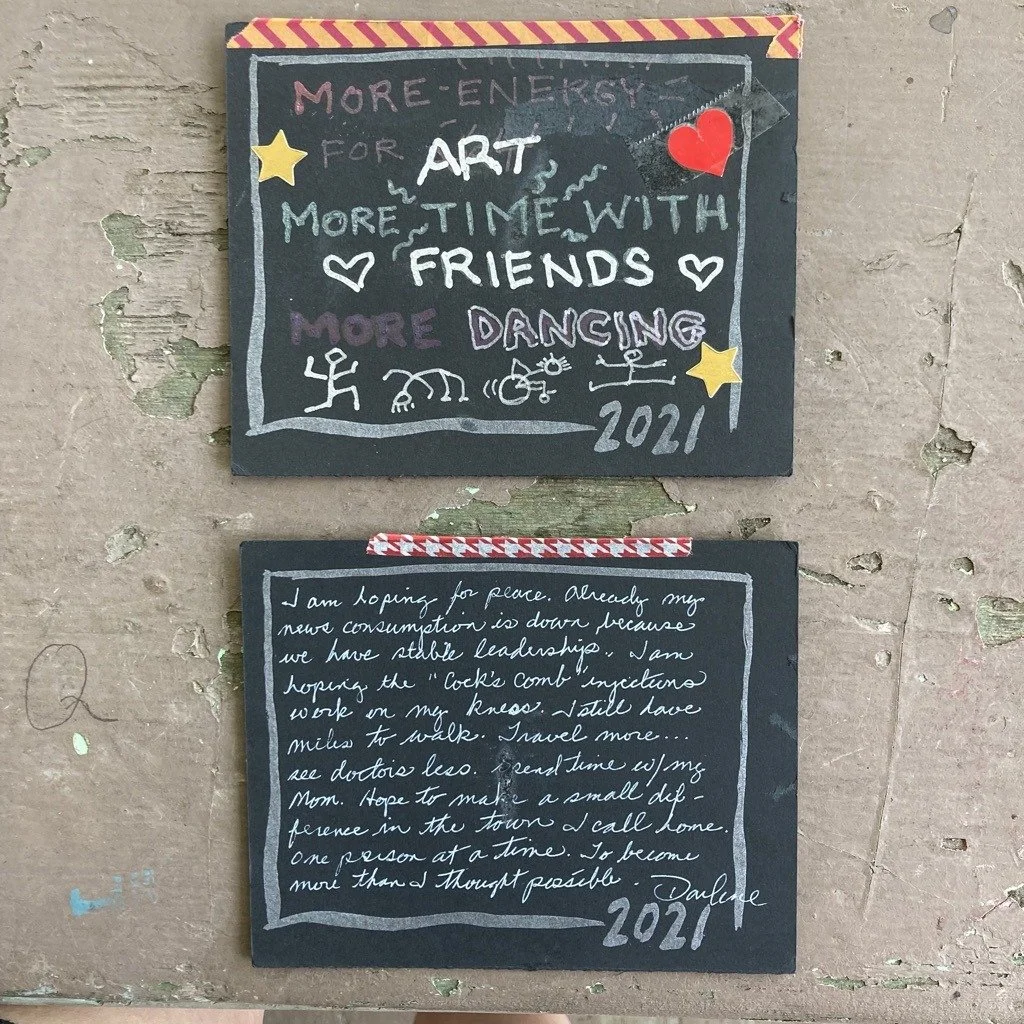 MORE ENERGY
FOR ART
MORE TIME WITH
FRIENDS
MORE DANCING
2021
I am hoping for peace. Already my
news consumption is down, because
we have stable leadership. I am
hoping the "Cock's Comb" injections
work on my knees. I still have
miles to walk. Travel more...
see doctors less. Spend time w/ my
Mom. Hope to make a small dif-
ference in the town I call home.
One person at a time. To become
more than I thought possible.
Darlene
2021
Q